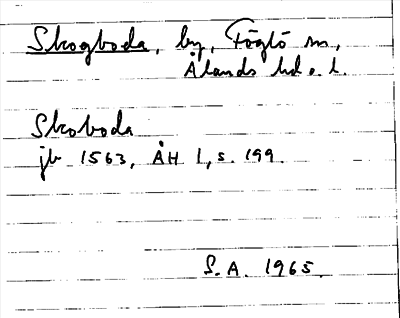 Skogboda, by, Föglö sn,
Ålands hd o. l.
Skoboda
jb 1563, ÅH 1, s. 199.
S. A. 1965.